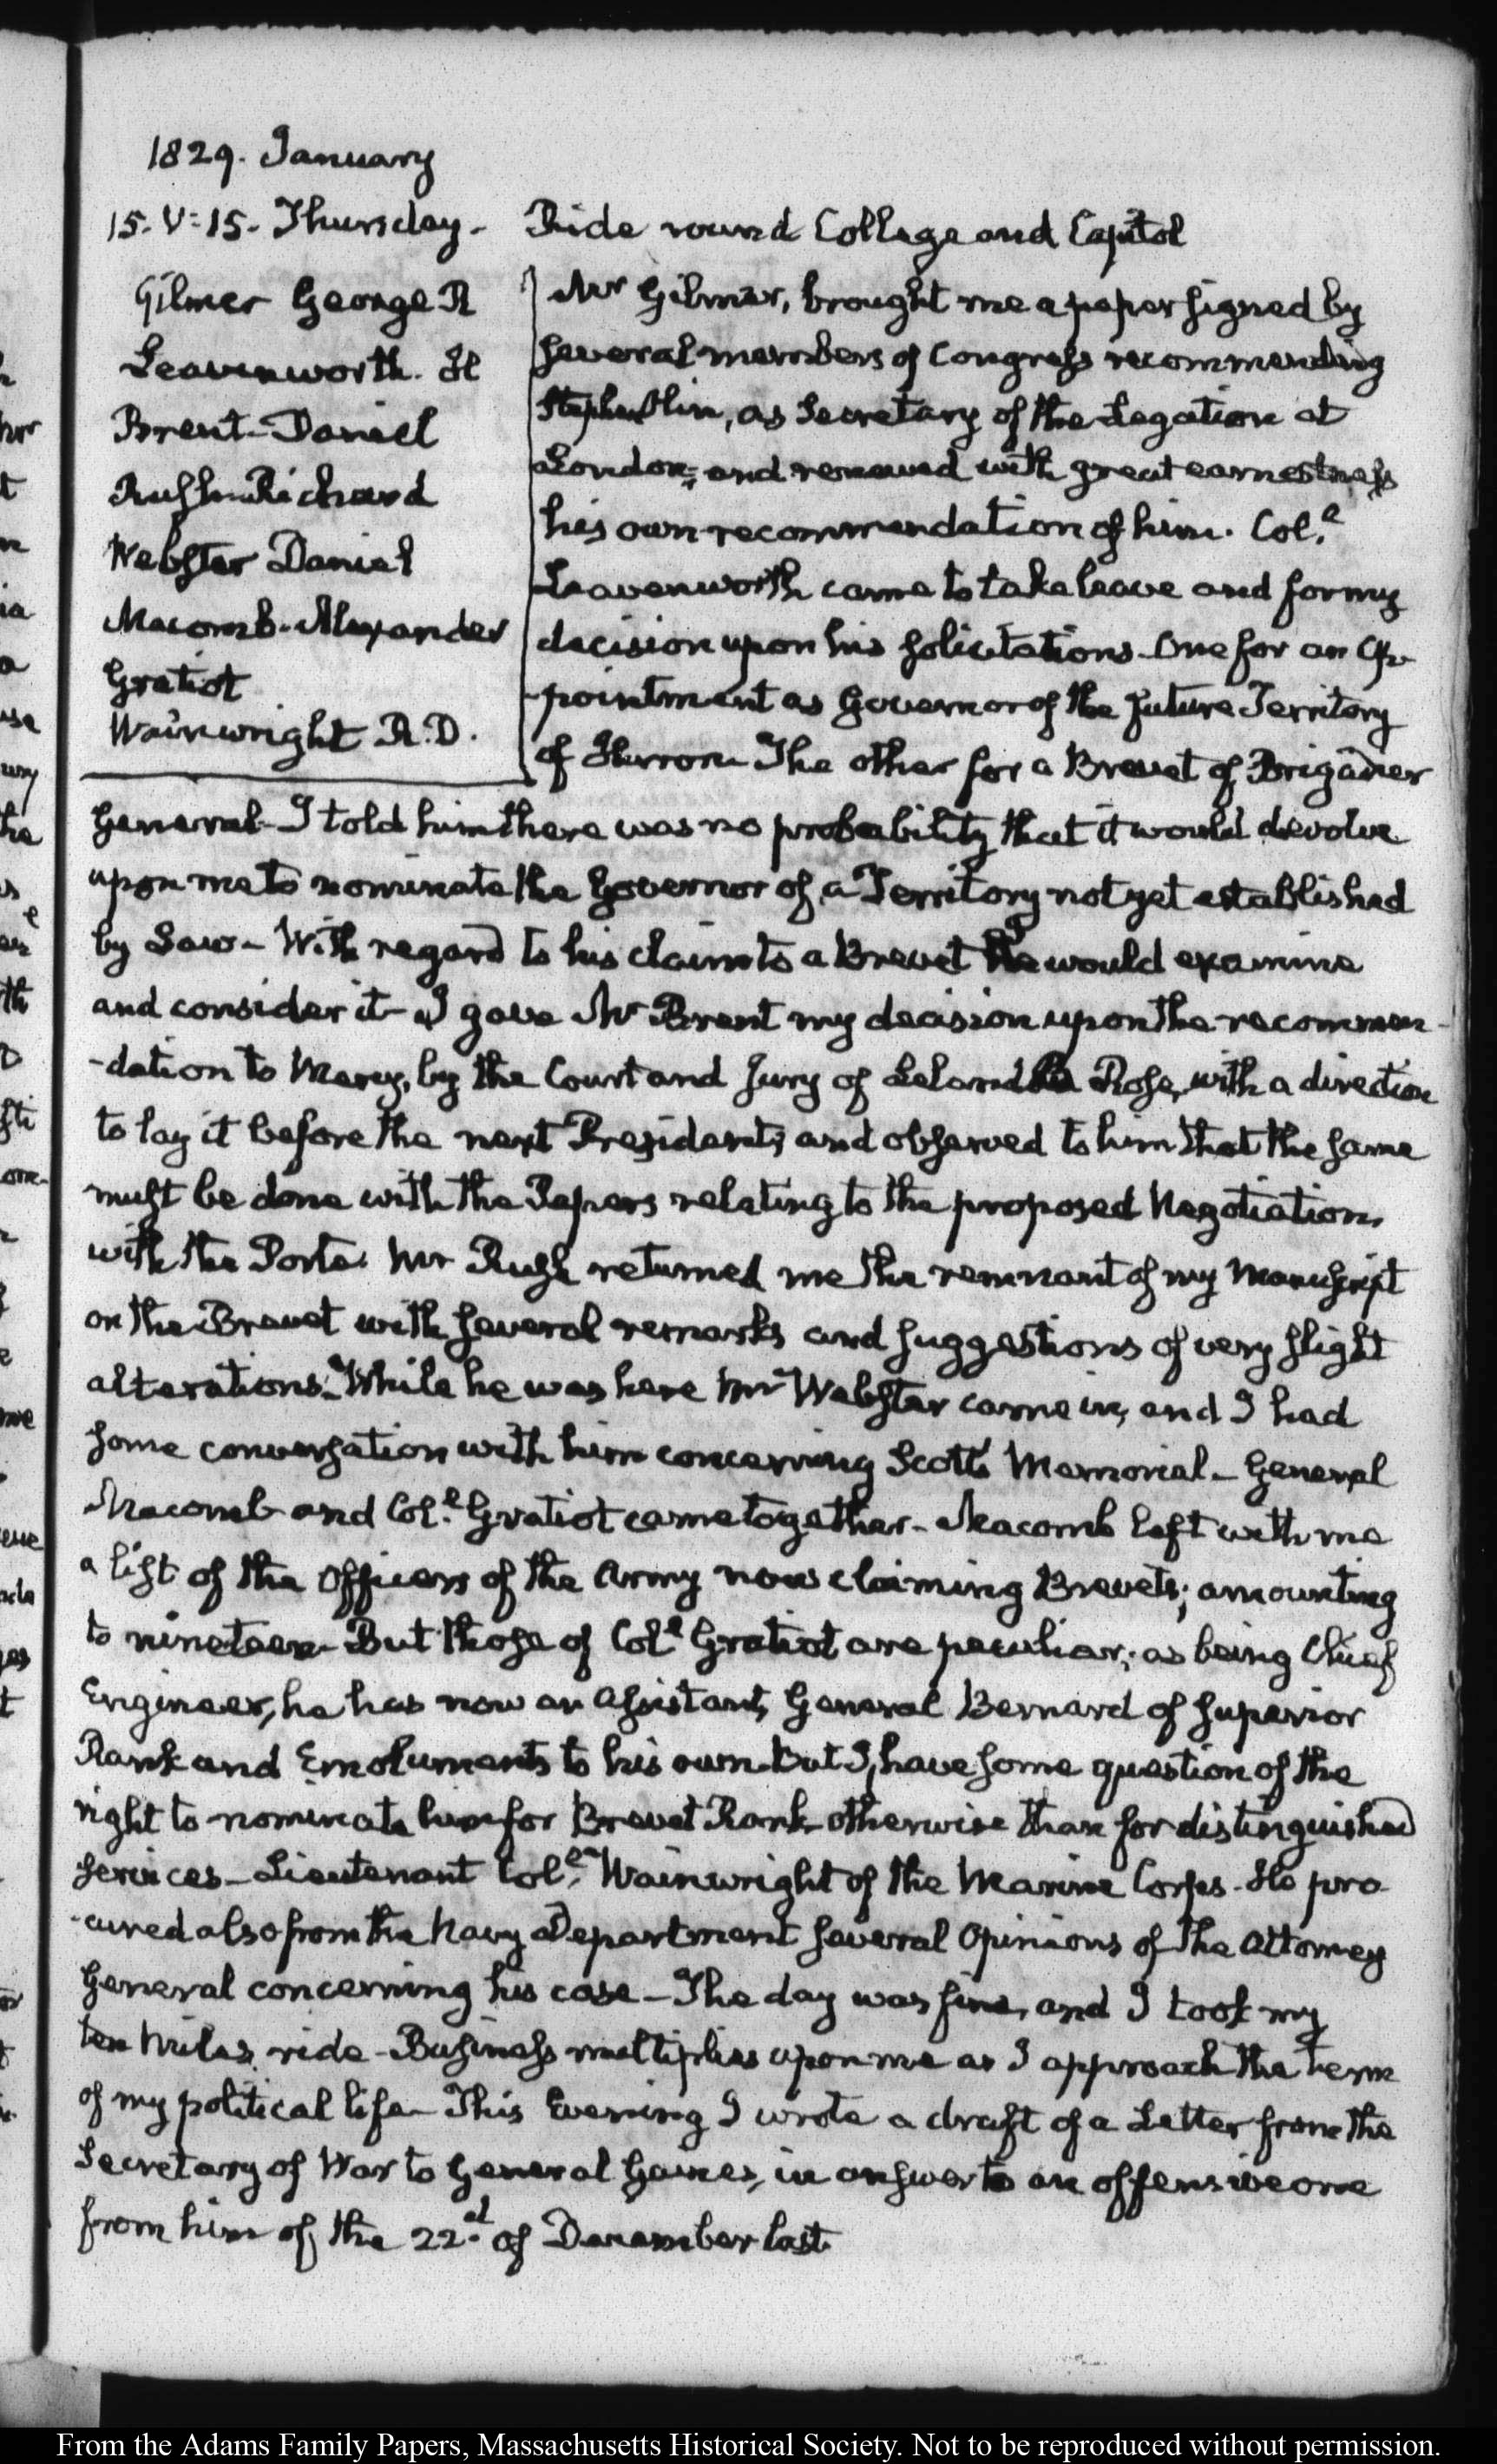 1829. January
15. V:15. Thursday.
Gilmer George R
Leavenworth. H
Brent. Daniel
Rush Richard
Webster Daniel
Macomb. Alexander
Gratiot
Wainwright R. D.
Ride round College and Capitol
Mr Gilmer, brought me a paper signed by
several members of Congress recommending
Stephen Olin, as Secretary of the Legation at
London; and renewed with great earnestness
his own recommendation of him. Col.l
Leavenworth came to take leave and for my
decision upon his solicitations. One for an Ap-
-pointment as Governor of the future Territory
of Huron. The other for a Brevet of Brigadier
General. I told him there was no probability that it would devolve
upon me to nominate the Governor of a Territory not yet established
by Law. With regard to his claim to a Brevet would examine
and consider it. I gave Mr Brent my decision upon the recommen-
-dation to Mercy, by the Court and Jury of Leland Rose, with a direction
to lay it before the next President; and observed to him that the same
must be done with the Papers relating to the proposed Negotiation,
with the Porte. Mr Rush returned me the remnant of my Manuscript
on the Brevet with several remarks and suggestions of very slight
alterations. While he was here Mr Webster came in, and I had
some conversation with him concerning Scott's Memorial. General
Macomb and Col.l Gratiot came together. Macomb left with me
a list of the Officers of the Army now claiming Brevets; amounting
to nineteen. But those of Coll Gratiot are peculiar; as being Chief
Engineer, he has now an Assistant, General Bernard of superior
Rank and Emoluments to his own. But I, have some question of the
right to nominate him for Brevet Rank otherwise than for distinguished
services. Lieutenant Col.l Wainwright of the Marine Corps. He pro-
-cured also from the Navy Department several Opinions of the Attorney
General concerning his case. The day was fine, and I took my
ten miles ride. Business multiplies upon me as I approach the term
of my political life. This Evening I wrote a draft of a Letter from the
Secretary of War to General Gaines, in answer to an offensive one
from him of the 22.d of December last.
From the Adams Family Papers, Massachusetts Historical Society. Not to be reproduced without permission.